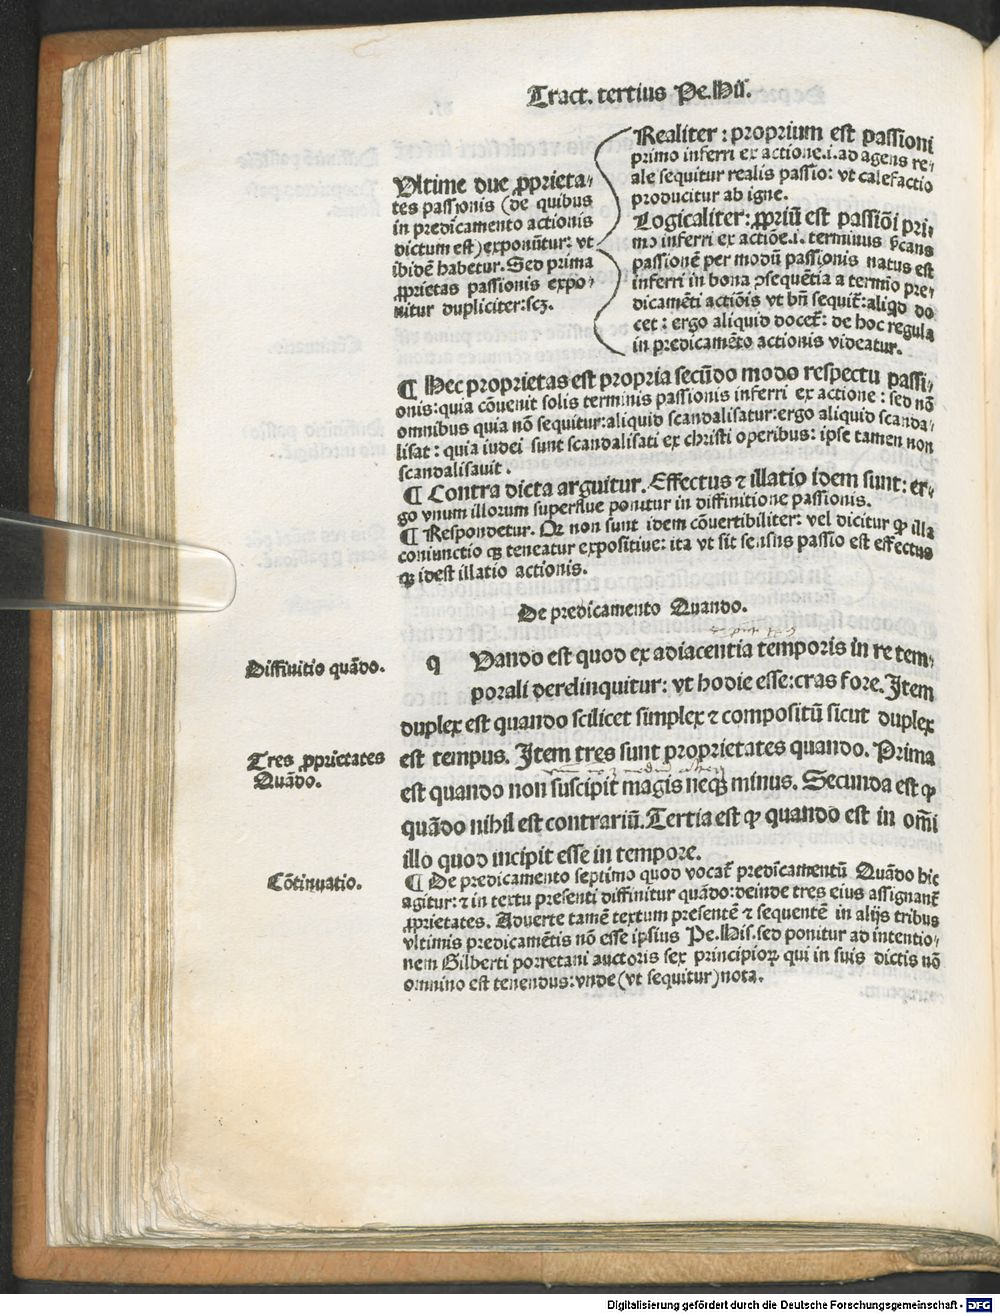 Tract. tertius Pe. His.
Ultime due ꝓprieta-
tes passionis (de quibus
in predicamento actionis
dictum est) exponūtur: vt
ibidē habetur. Sed prima
ꝓprietas passionis expo-
nitur dupliciter: scꝫ.
Realiter: proprium est passioni
primo inferri ex actione.i. ad agens re-
ale sequitur realis passio: vt calefactio
producitur ab igne.
Logicaliter: ꝓpriū est passiōi pri-
mo inferri ex actiōe.i. terminus v̄cans
passionē per modū passionis natus est
inferri in bona ꝯsequētia a termīo pre-
dicamēti actiōis vt bn̄ sequit᷑: aliqd do
cet: ergo aliquid docet᷑: de hoc regula
in predicamēto actionis videatur.
¶ Hec proprietas est propria secūdo modo respectu passi-
onis: quia cōuenit solis terminis passionis inferri ex actione: sed nō
omnibus quia nō sequitur: aliquid scandalisatur: ergo aliquid scanda-
lisat: quia iudei sunt scandalisati ex christi operibus: ipse tamen non
scandalisauit.
¶ Contra dicta arguitur. Effectus ⁊ illatio idem sunt: er-
go vnum illorum superflue ponitur in diffinitione passionis.
¶ Respondetur. Qꝛ non sunt idem cōuertibiliter: vel dicitur ꝙ illa
coniunctio qꝫ teneatur expositiue: ita vt sit sensus passio est effectus
qꝫ idest illatio actionis.
De predicamento Quando.
Diffinitio quādo.
q Vando est quod ex adiacentia temporis in re tem-
porali derelinquitur: vt hodie esse: cras fore. Item
duplex est quando scilicet simplex ⁊ compositū sicut duplex
Tres ꝓprietates
Quādo.
est tempus. Item tres sunt proprietates quando. Prima
est quando non suscipit magis neqꝫ minus. Secunda est ꝙ
quādo nihil est contrariū. Tertia est ꝙ quando est in om̄i
illo quod incipit esse in tempore.
Cōtinuatio.
¶ De predicamento septimo quod vocat᷑ predicamentū Quādo hic
agitur: ⁊ in textu presenti diffinitur quādo: deinde tres eius assignant᷑
ꝓprietates. Aduerte tamē textum presentē ⁊ sequentē in alijs tribus
vltimis predicamētis nō esse ipsius Pe. His. sed ponitur ad intentio-
nem Gilberti porretani auctoris sex principioꝝ qui in suis dictis nō
omnino est tenendus: vnde (vt sequitur) nota.
Digitalisierung gefördert durch die Deutsche Forschungsgemeinschaft - DFG